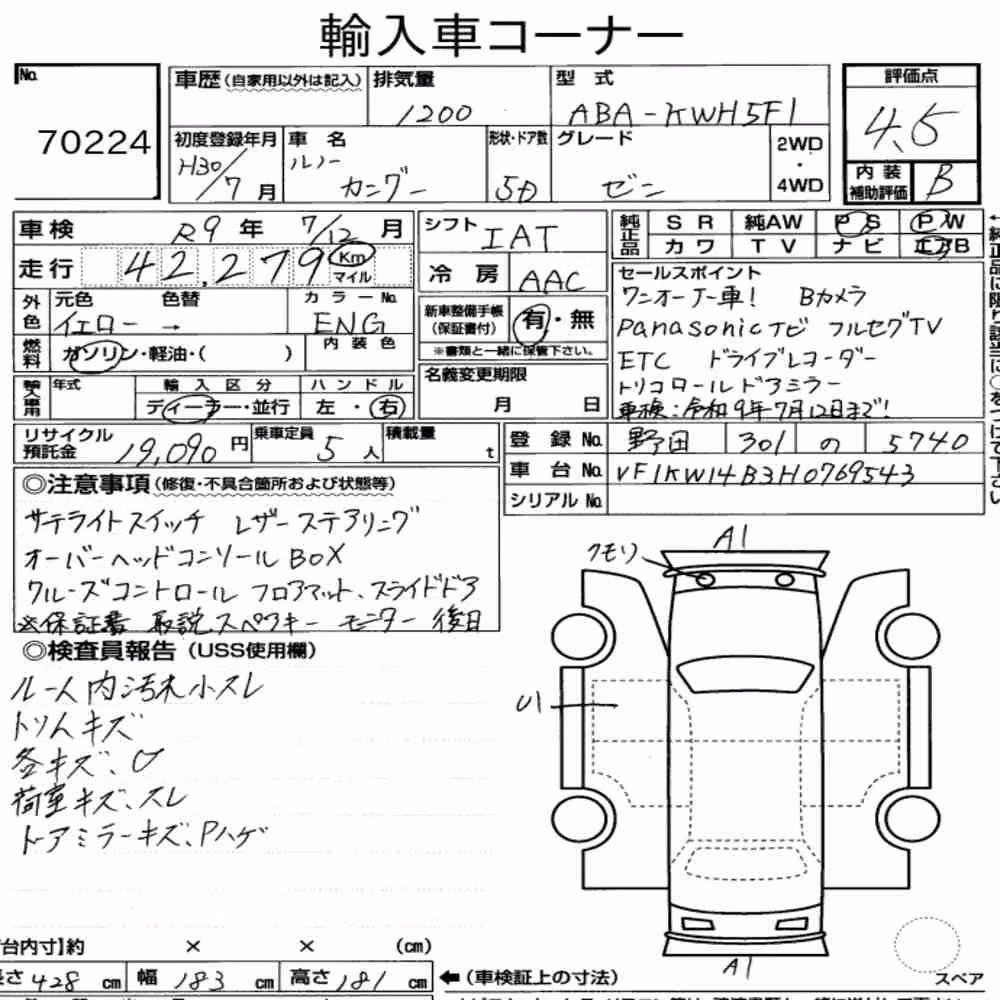 輸入車コーナー
No. 70224
車歴(自家用以外は記入) 排気量 1200 型式 ABA-KWH5F1 評価点 4.5
初度登録年月 H30/7月 車名 ルノー カングー 形状・ドア数 5D グレード ゼン 2WD・4WD 内装補助評価 B
車検 R9年 7/12月 シフト IAT 純正品 SR 純AW PS PW
カワ TV ナビ エアB
走行 42,279 Km マイル 冷房 AAC
外色 元色 イエロー → 色替 カラーNo. ENG
新車整備手帳(保証書付) 有・無
※書類と一緒に保管下さい。
燃料 ガソリン・軽油・( ) 内装色
輸入車用 年式 輸入区分 ディーラー・並行 ハンドル 左・右
名義変更期限 月 日
セールスポイント
ワンオーナー車! Bカメラ
Panasonicナビ フルセグTV
ETC ドライブレコーダー
トリコロールドアミラー
車検:令和9年7月12日まで!
リサイクル預託金 19,090円 乗車定員 5人 積載量 t
登録No. 野田 301 の 5740
車台No. VF1KW14B3H0769543
シリアルNo.
◎注意事項(修復・不具合箇所および状態等)
サテライトスイッチ レザーステアリング
オーバーヘッドコンソールBOX
クルーズコントロール フロアマット、スライドドア
※保証書 取説 スペアキー モニター 後日
◎検査員報告(USS使用欄)
ルーム内汚れ小スレ
トリムキズ
各キズ、U
荷室キズ、スレ
ドアミラーキズ、Pハゲ
A1
クモリ
U1
A1
スペア
台内寸】約 × × (cm)
長さ 428 cm 幅 183 cm 高さ 181 cm ←(車検証上の寸法)